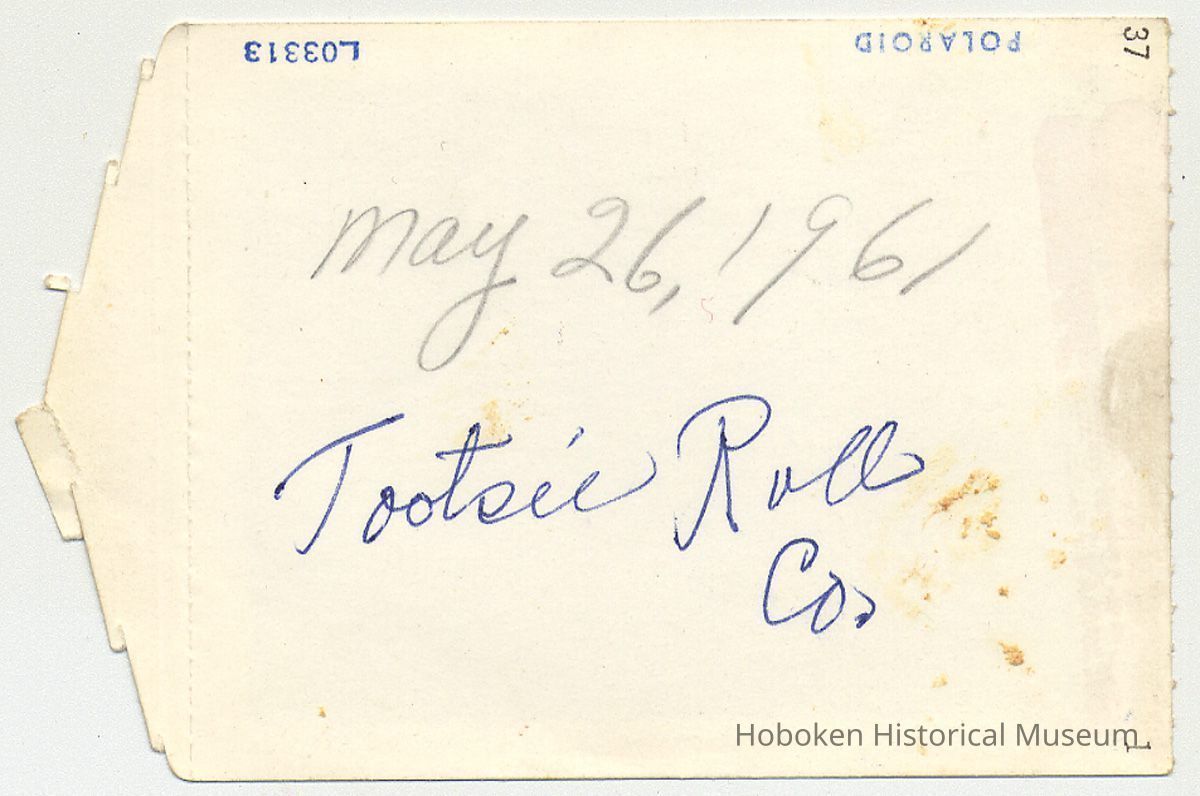 L03313
POLAROID
37
May 26, 1961
Tootsie Roll
Co.
Hoboken Historical Museum
1